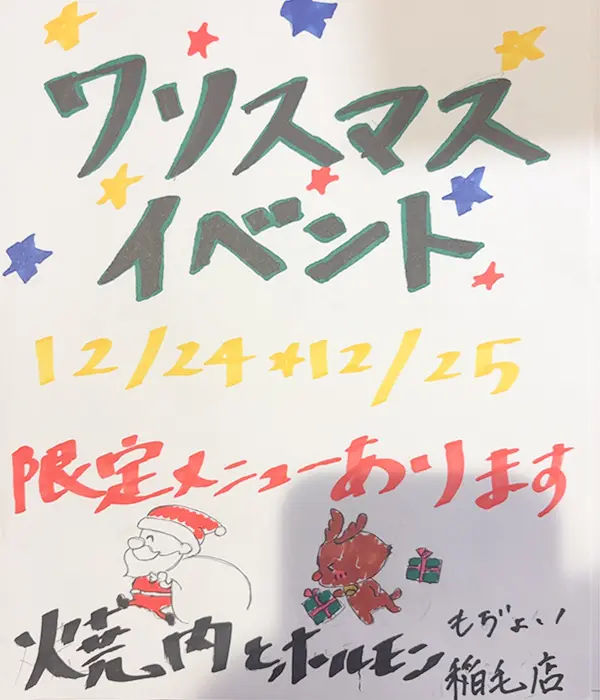 クリスマス
イベント
12/24★12/25
限定メニューあります
焼肉とホールモン
もぢょい
稲毛店